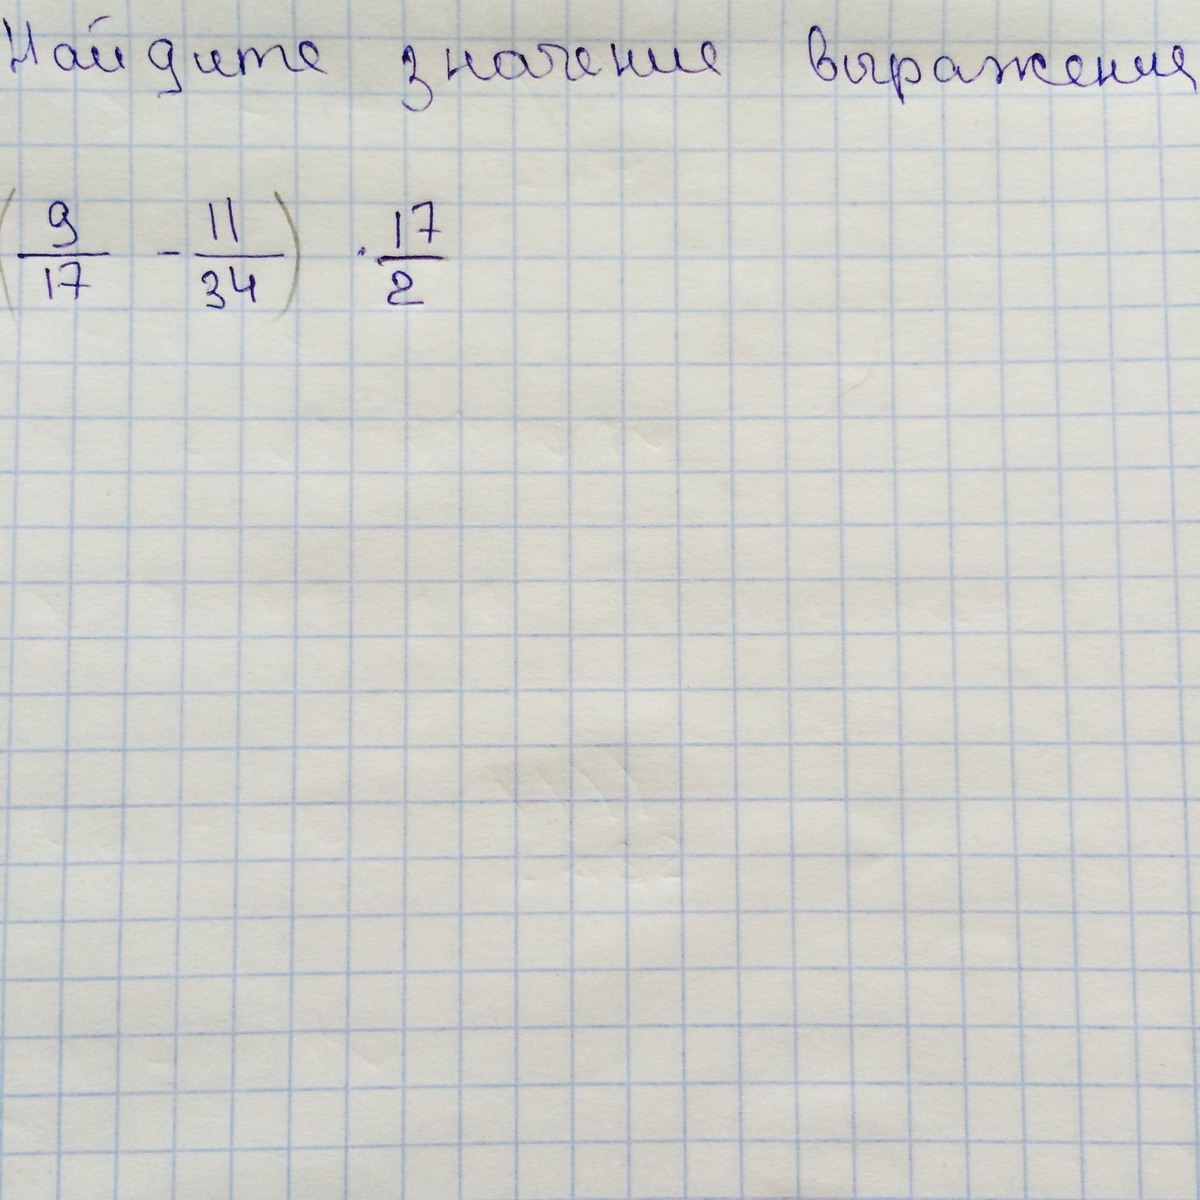 Найдите значение выражения
(9/17 - 11/34) · 17/2